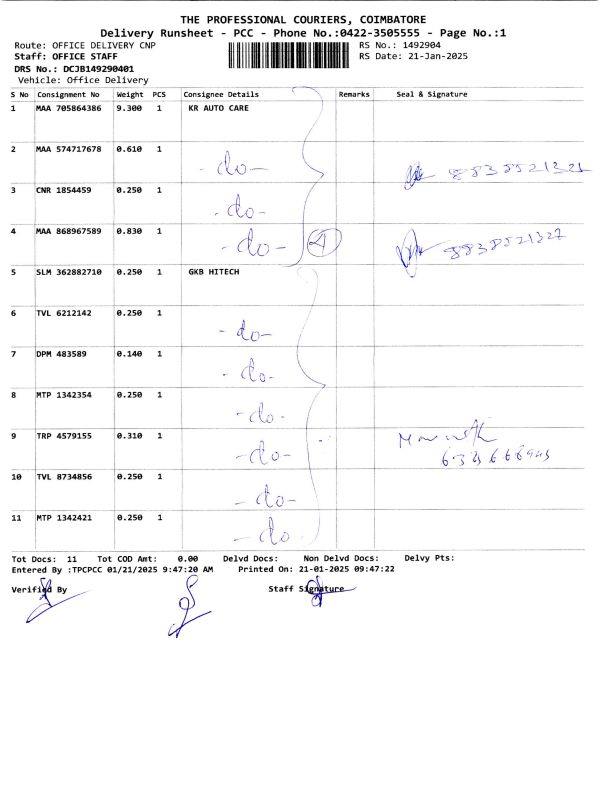 THE PROFESSIONAL COURIERS, COIMBATORE
Delivery Runsheet - PCC - Phone No.:0422-3505555 - Page No.:1
Route: OFFICE DELIVERY CNP RS No.: 1492904
Staff: OFFICE STAFF RS Date: 21-Jan-2025
DRS No.: DCJB149290401
Vehicle: Office Delivery
S No Consignment No Weight PCS Consignee Details Remarks Seal & Signature
1 MAA 705864386 9.300 1 KR AUTO CARE
2 MAA 574717678 0.610 1 -do- 8838521321
3 CNR 1854459 0.250 1 -do-
4 MAA 868967589 0.830 1 -do- 4 8838521327
5 SLM 362882710 0.250 1 GKB HITECH
6 TVL 6212142 0.250 1 -do-
7 DPM 483589 0.140 1 -do-
8 MTP 1342354 0.250 1 -do-
9 TRP 4579155 0.310 1 -do-
10 TVL 8734856 0.250 1 -do-
11 MTP 1342421 0.250 1 -do
Tot Docs: 11 Tot COD Amt: 0.00 Delvd Docs: Non Delvd Docs: Delvy Pts:
Entered By :TPCPCC 01/21/2025 9:47:20 AM Printed On: 21-01-2025 09:47:22
Verified By Staff Signature